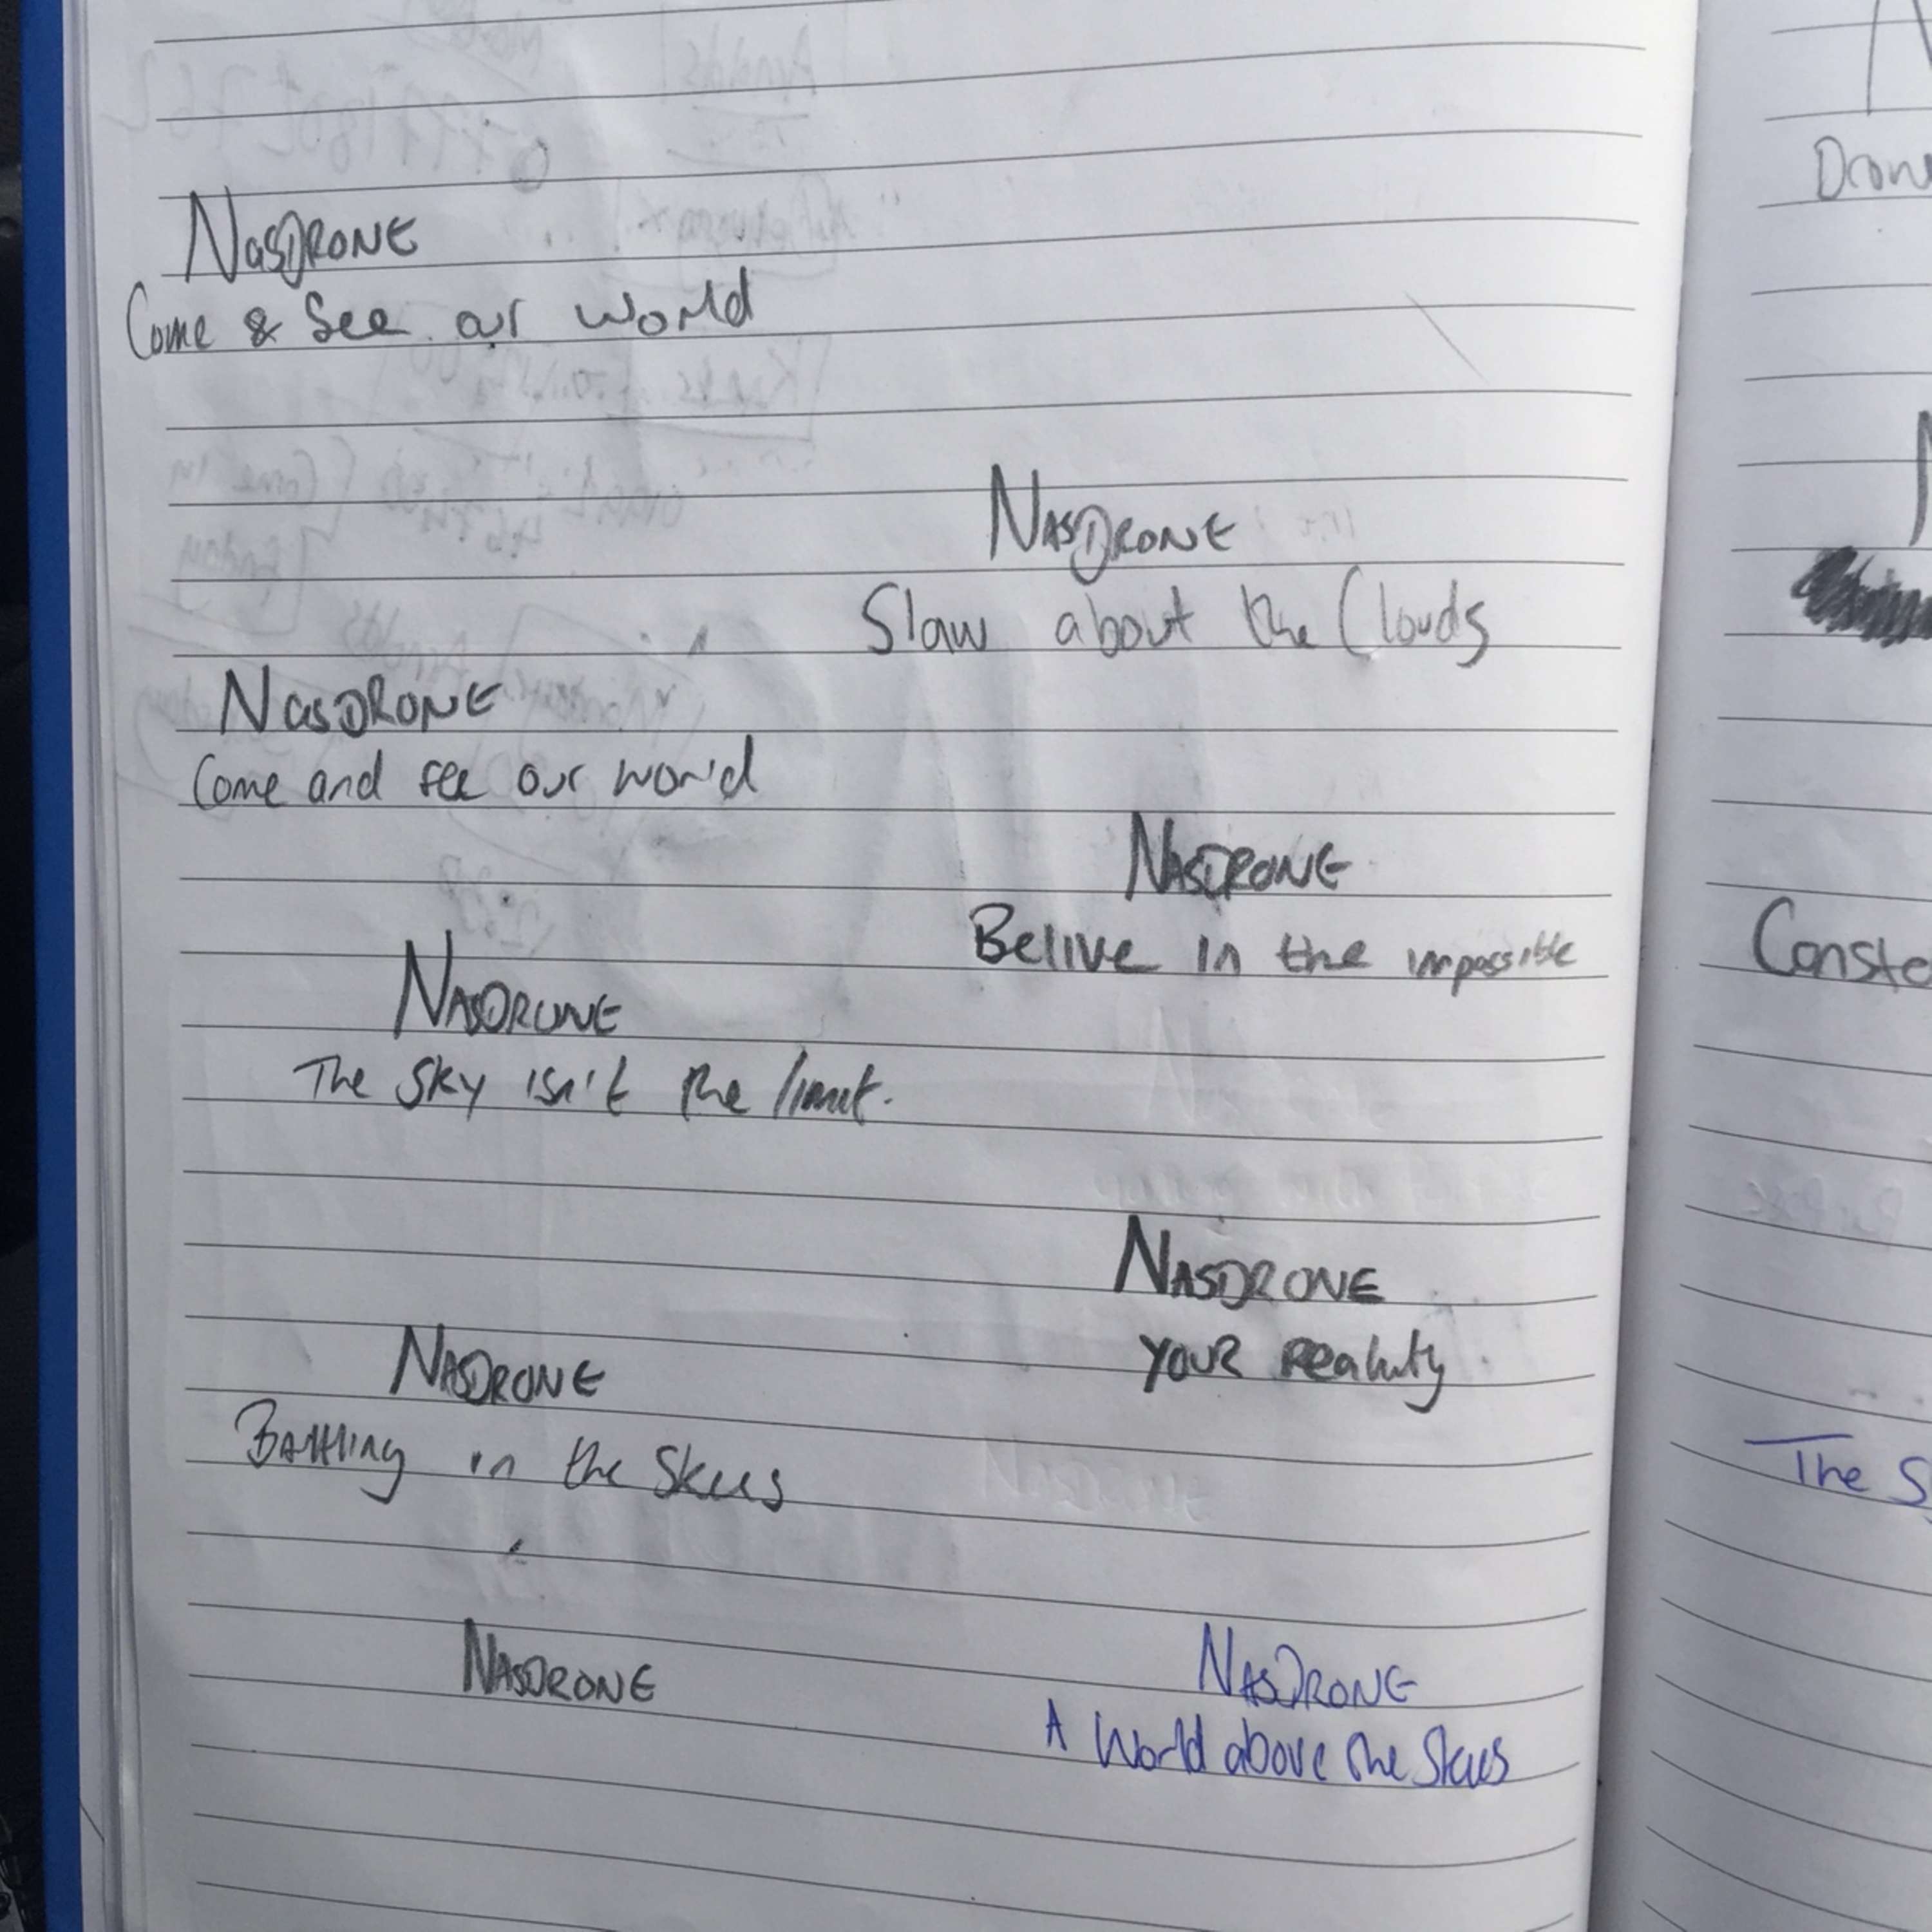 NasDRONE
Come & See our world
NASDRONE
Slaw about the Clouds
NasDRONE
Come and see our world
NASDRONE
Belive in the impossible
NASDRONE
The Sky isn't the limit.
NASDRONE
YOUR Reality.
NASDRONE
in the Skies
NASDRONE
NASDRONE
A World above the Skies
The S